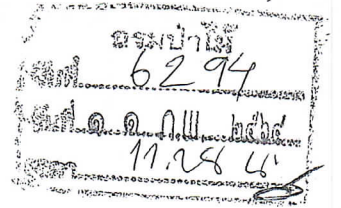 กรมป่าไม้
รับที่ 6294
วันที่ ๑ ๑ ก.พ. ๒๕๖๕
เวลา 11.28 น.